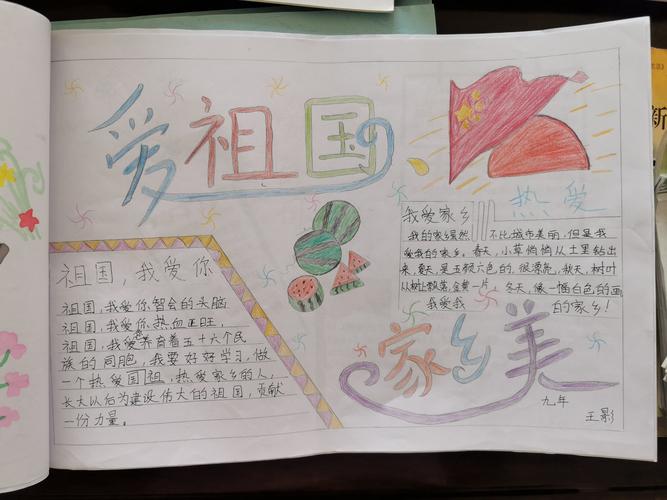 爱祖国、
祖国,我爱你
祖国,我爱你智会的头脑
祖国,我爱你热血正旺,
祖国,我爱养育着五十六个民
族的同胞,我要好好学习,做
一个热爱国祖,热爱家乡的人,
长大以后为建设伟大的祖国,贡献
一份力量。
热爱
我爱家乡
我的家乡虽然 不比城市美丽,但是我
爱我的家乡。春天,小草悄悄从土里钻出
来,夏天,是五颜六色的,很漂亮,秋天,树叶
从树上飘落,金黄一片 冬天,像一幅白色的画
我爱我 的家乡!
家乡美
九年
王影
新